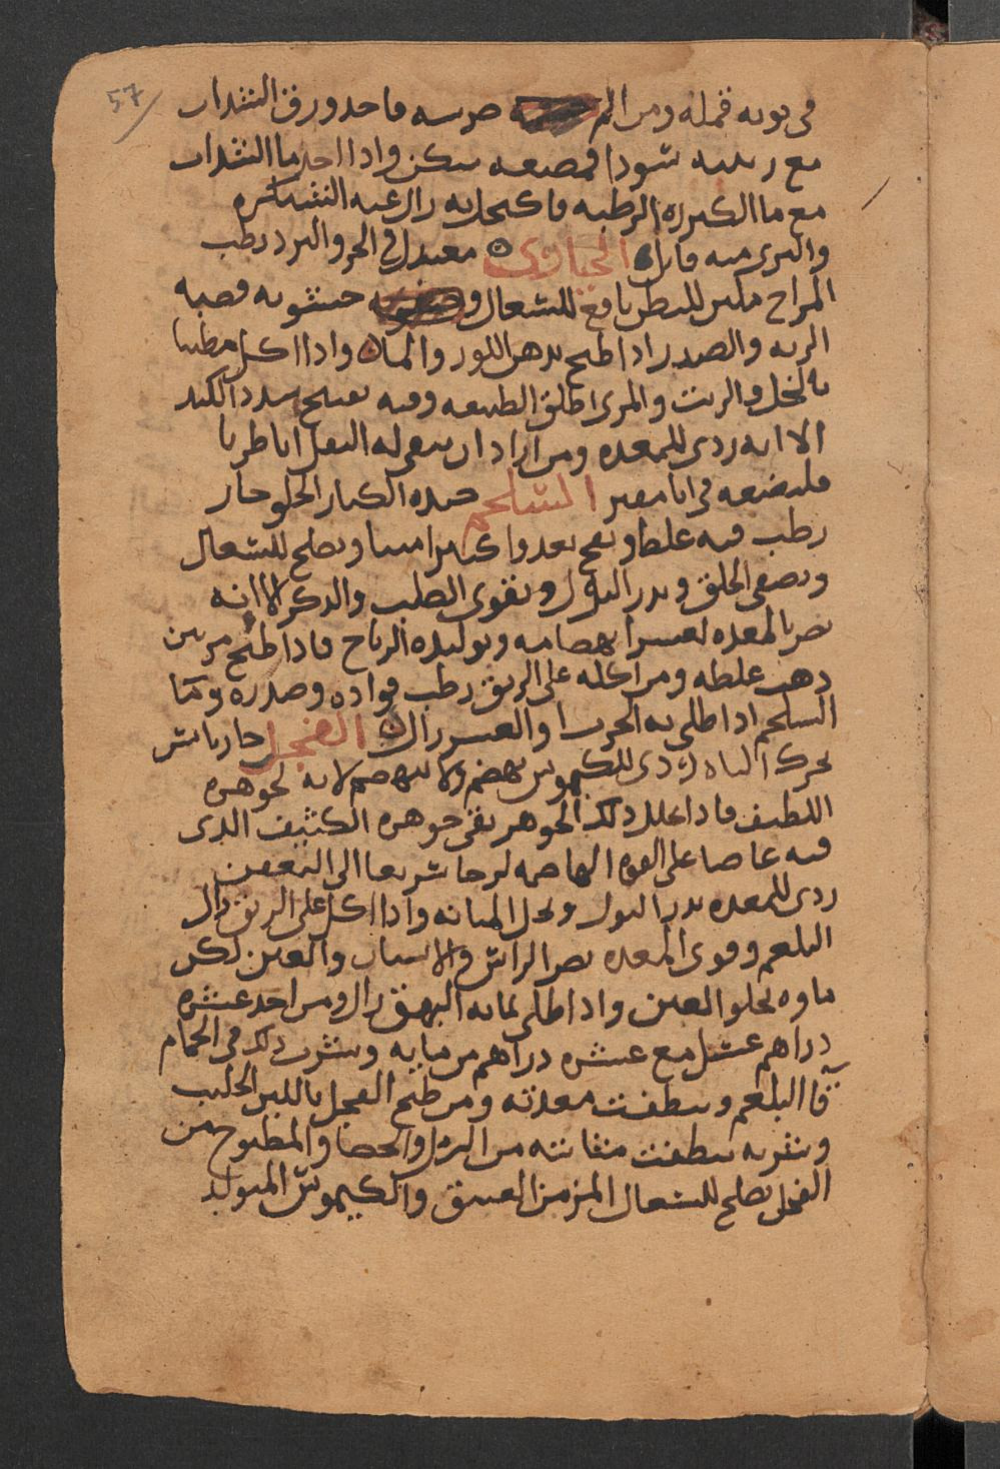 57
في ثوبه قمله ومن الم ضرسه فاخد ورق السداب
مع زبيبه سودا فمضغه سكن وادا اخد ما السداب
مع ما الكزبره الرطبه فاكتحل به زال عنه
والبري منه قاتل الخبازى معتدل في الحر والبرد رطب
المزاج ملين للبطن نافع للسعال و خشونه قصبه
الريه والصدر ادا طبخ بدهن اللوز والما وادا اكل مطيبا
بالخل والزيت والمري اطلق الطبيعه وفيه تفتيح سدد الكبد
الا انه ردي للمعده ومن اراد ان يبقى له البقل اياما طريا
فليضعه في انا مقير السلجم جيده الكبار الحلو حار
رطب فيه غلظ ونفخ يغدوا كثيرا منيا ويصلح للسعال
ويصفي الحلق ويدر البول ويقوي الصلب والدكر الا انه
يضر بالمعده لعسر انهضامه وتوليده الرياح فادا طبخ مرتين
دهب غلظه ومن اكله على الريق رطب فواده وصدره وما
السلجم ادا طلي به الجرب زال الفجل حار يابس
يحرك الباه ردي الكيموس يهضم ولا ينهضم لانه بجوهره
اللطيف فادا تحلل دلك الجوهر بقي جوهره الكثيف الدي
فيه عاصيا على القوه الهاضمه لزجا سريعا الى التعفن
ردي للمعده يدر البول وادا اكل على الريق
البلغم وقوى المعده يضر الراس والاسنان والعين لكن
ماوه يجلو العين وادا طلي بمايه البهق زال ومن اخد عشره
دراهم عسل مع عشره دراهم من مايه وشرب دلك في الحمام
قا البلغم ونظفت معدته ومن طبخ الفجل باللبن الحليب
وشربه نظفت مثانته من الرمل والحصا والمطبوخ من
الفجل يصلح للسعال المزمن العتيق والكيموس المتولد